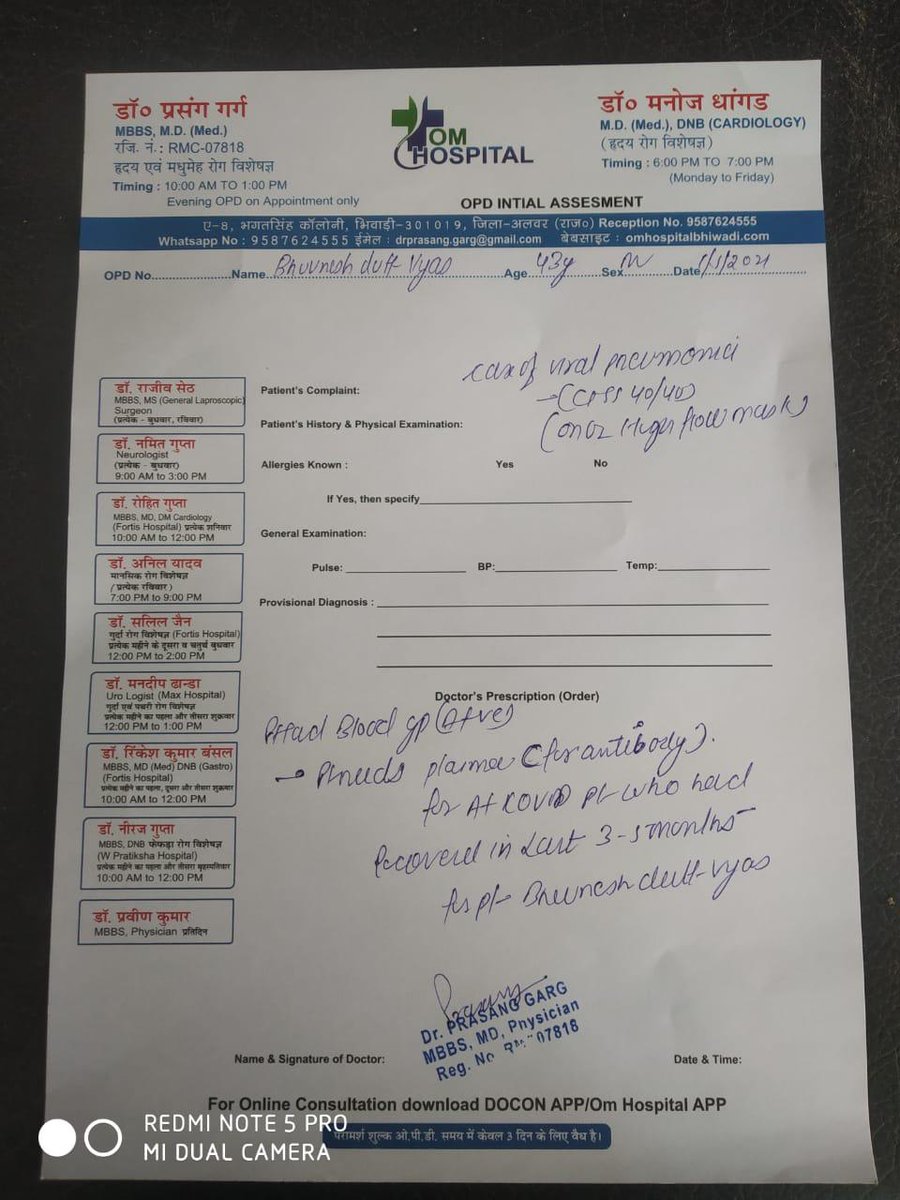 डॉ० प्रसंग गर्ग
MBBS, M.D. (Med.)
रजि. नं.: RMC-07818
हृदय एवं मधुमेह रोग विशेषज्ञ
Timing : 10:00 AM TO 1:00 PM
Evening OPD on Appointment only
OM
HOSPITAL
डॉ० मनोज धांगड
M.D. (Med.), DNB (CARDIOLOGY)
(हृदय रोग विशेषज्ञ)
Timing : 6:00 PM TO 7:00 PM
(Monday to Friday)
OPD INTIAL ASSESMENT
ए-8, भगतसिंह कॉलोनी, भिवाड़ी-301019, जिला-अलवर (राज०) Reception No. 9587624555
Whatsapp No : 9587624555 ईमेल : drprasang.garg@gmail.com वेबसाइट : omhospitalbhiwadi.com
OPD No. Name Bhuvnesh dutt Vyas Age 43y Sex M Date 1/1/2021
case of viral pneumonia
(40/40)
(on O2 High flow mask)
Patient's Complaint:
Patient's History & Physical Examination:
Allergies Known : Yes No
If Yes, then specify
General Examination:
Pulse: BP: Temp:
Provisional Diagnosis :
डॉ. राजीव सेठ
MBBS, MS (General Laproscopic)
Surgeon
(प्रत्येक - बुधवार, रविवार)
डॉ. नमित गुप्ता
Neurologist
(प्रत्येक - बुधवार)
9:00 AM to 3:00 PM
डॉ. रोहित गुप्ता
MBBS, MD, DM Cardiology
(Fortis Hospital) प्रत्येक शनिवार
10:00 AM to 12:00 PM
डॉ. अनिल यादव
मानसिक रोग विशेषज्ञ
(प्रत्येक रविवार)
7:00 PM to 9:00 PM
डॉ. सलिल जैन
गुर्दा रोग विशेषज्ञ (Fortis Hospital)
प्रत्येक महीने के दूसरा व चतुर्थ बुधवार
12:00 PM to 2:00 PM
डॉ. मनदीप ढान्डा
Uro Logist (Max Hospital)
गुर्दा एवं पथरी रोग विशेषज्ञ
प्रत्येक महीने का पहला और तीसरा शुक्रवार
12:00 PM to 1:00 PM
डॉ. रिंकेश कुमार बंसल
MBBS, MD (Med) DNB (Gastro)
(Fortis Hospital)
प्रत्येक महीने का पहला, दूसरा और तीसरा शुक्रवार
10:00 AM to 12:00 PM
डॉ. नीरज गुप्ता
MBBS, DNB फेफड़ा रोग विशेषज्ञ
(W Pratiksha Hospital)
प्रत्येक महीने का पहला और तीसरा बृहस्पतिवार
10:00 AM to 12:00 PM
डॉ. प्रवीण कुमार
MBBS, Physician प्रतिदिन
Doctor's Prescription (Order)
Blood gp (A+ve)
→ Pt needs plasma (for antibody).
for A+ COVID pt who had
Recovered in Last 3-5 months
for pt Bhuvnesh dutt Vyas
Dr. PRASANG GARG
MBBS, MD, Physician
Reg. No. RMC-07818
Name & Signature of Doctor: Date & Time:
For Online Consultation download DOCON APP/Om Hospital APP
परामर्श शुल्क ओ.पी.डी. समय में केवल 3 दिन के लिए वैध है।
REDMI NOTE 5 PRO
MI DUAL CAMERA